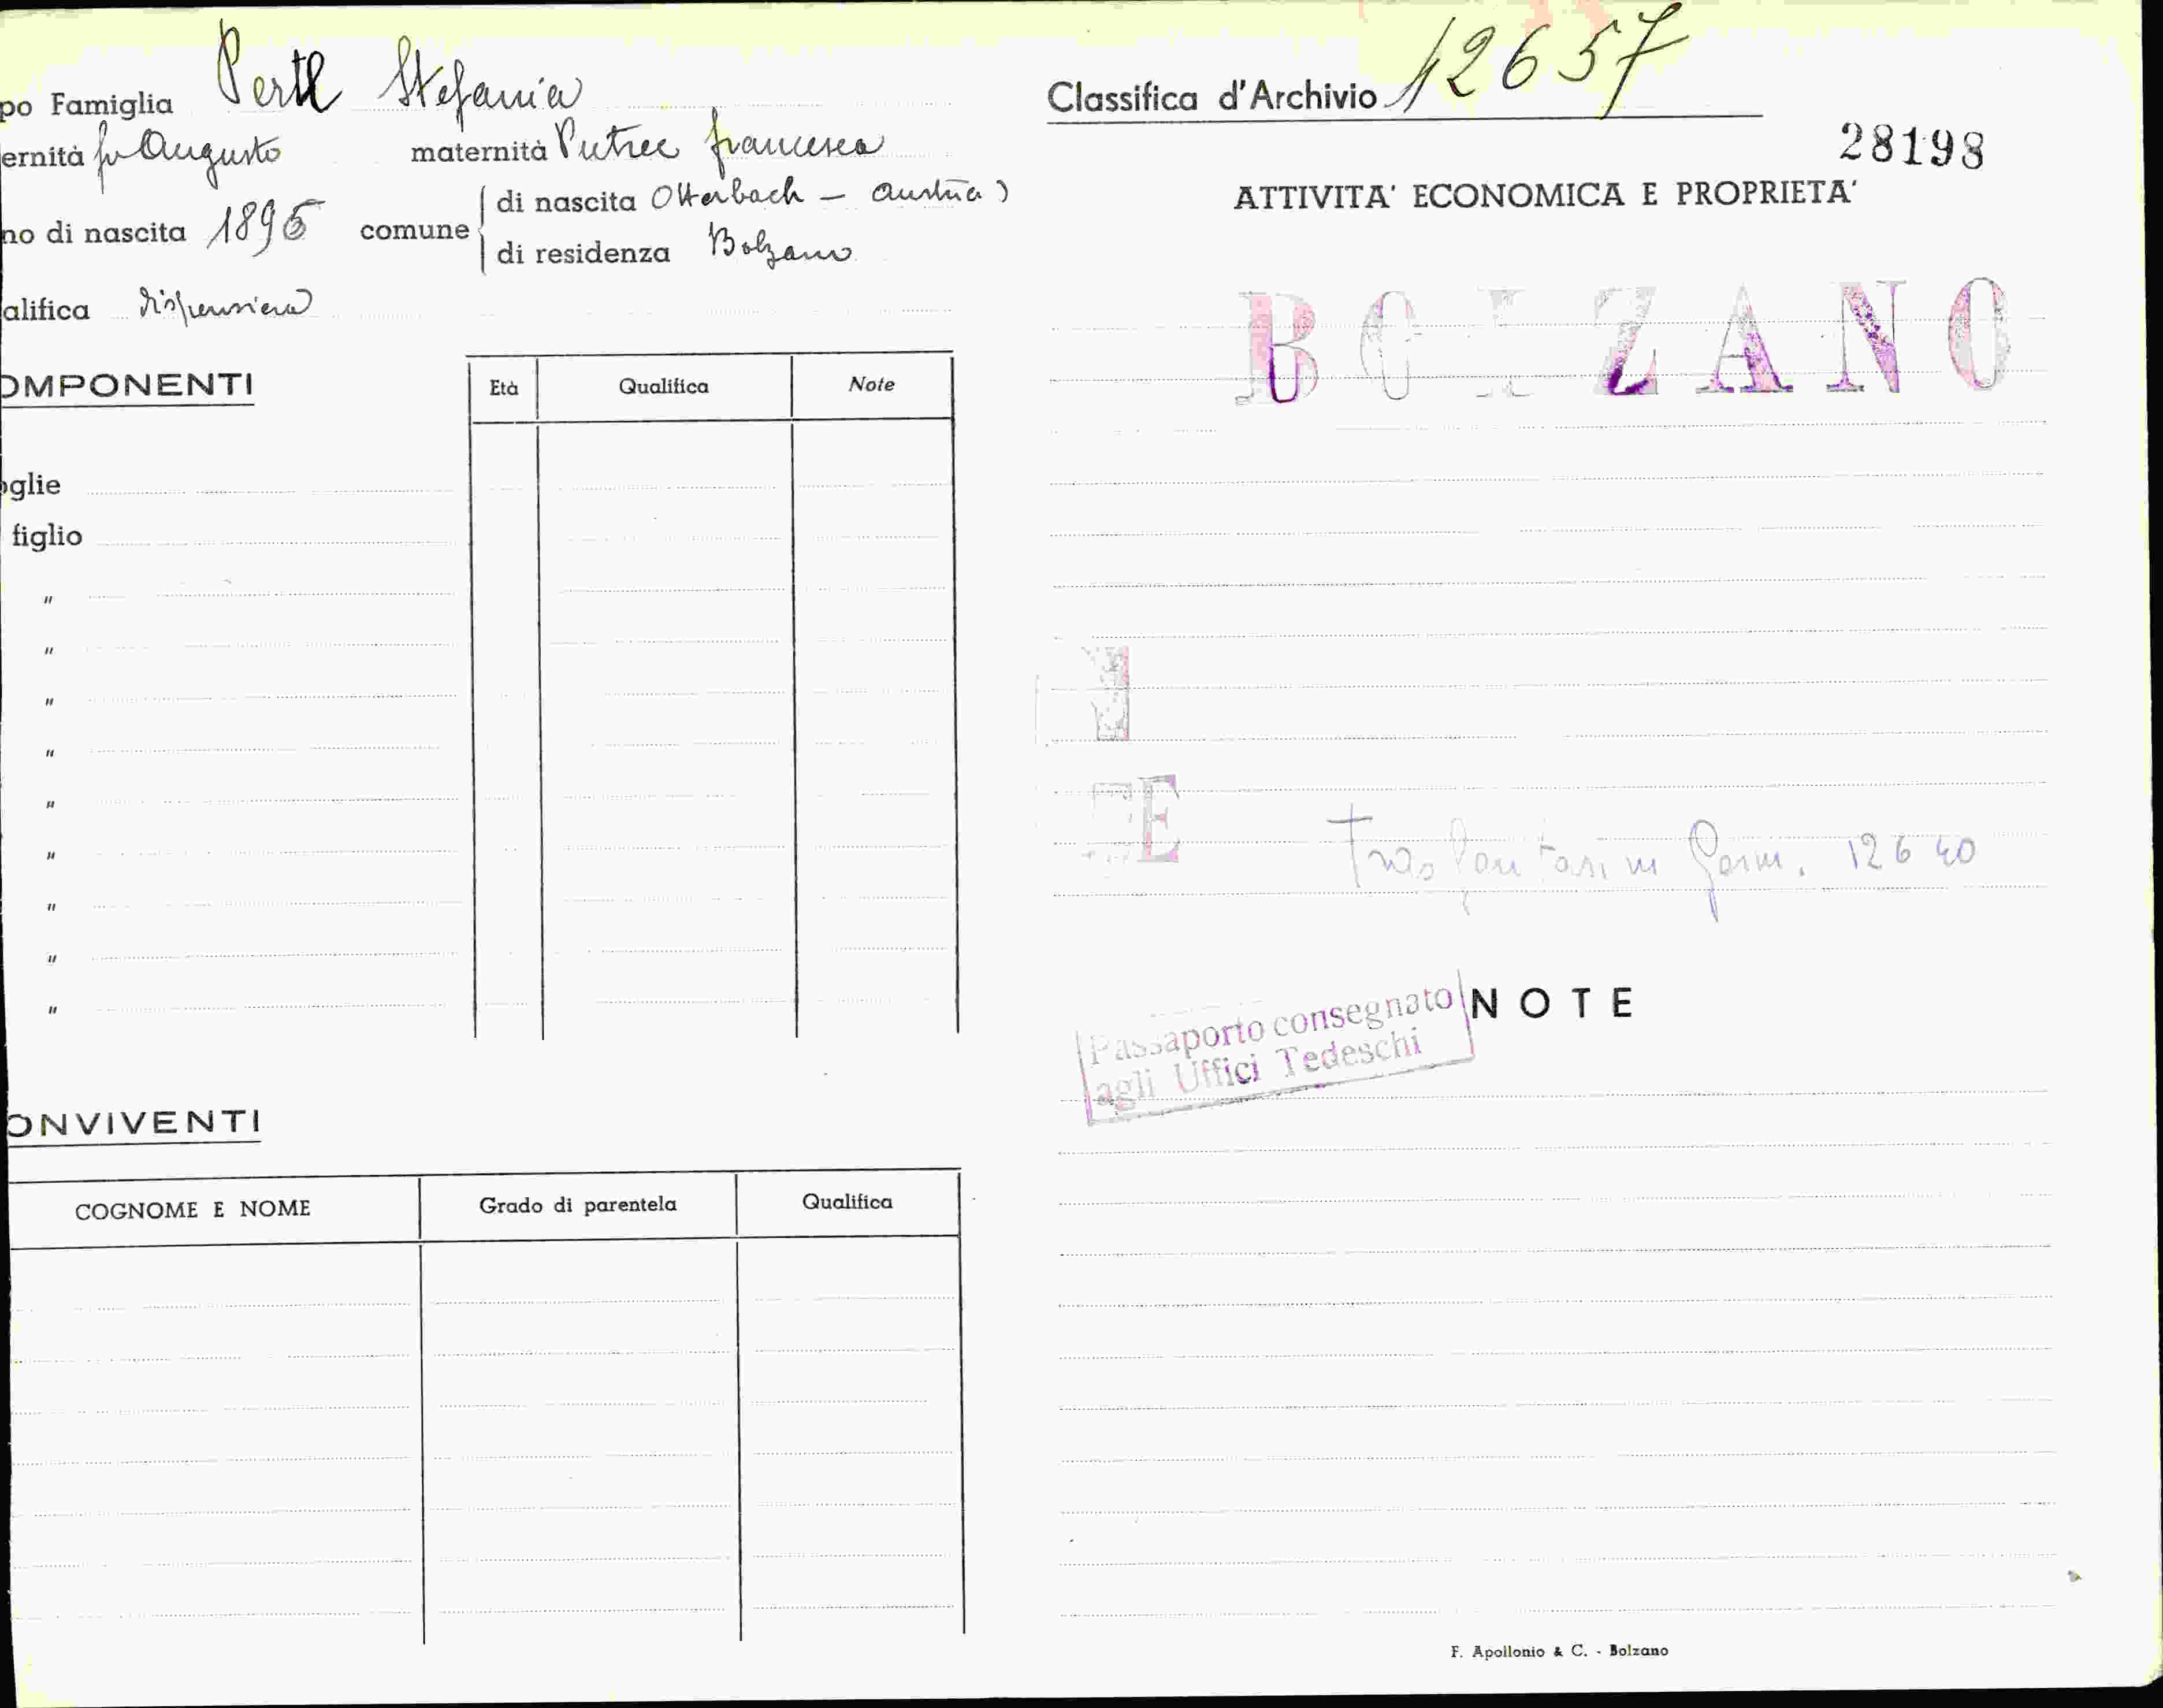 po Famiglia Pertl Stefania
ernità fu Augusto maternità Putree Francesca
no di nascita 1896 comune di nascita Otterbach - Austria)
di residenza Bolzano
alifica dispensiera
OMPONENTI
Età Qualifica Note
oglie
figlio
"
"
"
"
"
"
"
"
"
ONVIVENTI
COGNOME E NOME Grado di parentela Qualifica
Classifica d'Archivio 12657
28198
ATTIVITA' ECONOMICA E PROPRIETA'
BOLZANO
E
in Germ. 12 6 40
NOTE
Passaporto consegnato
agli Uffici Tedeschi
F. Apollonio & C. - Bolzano